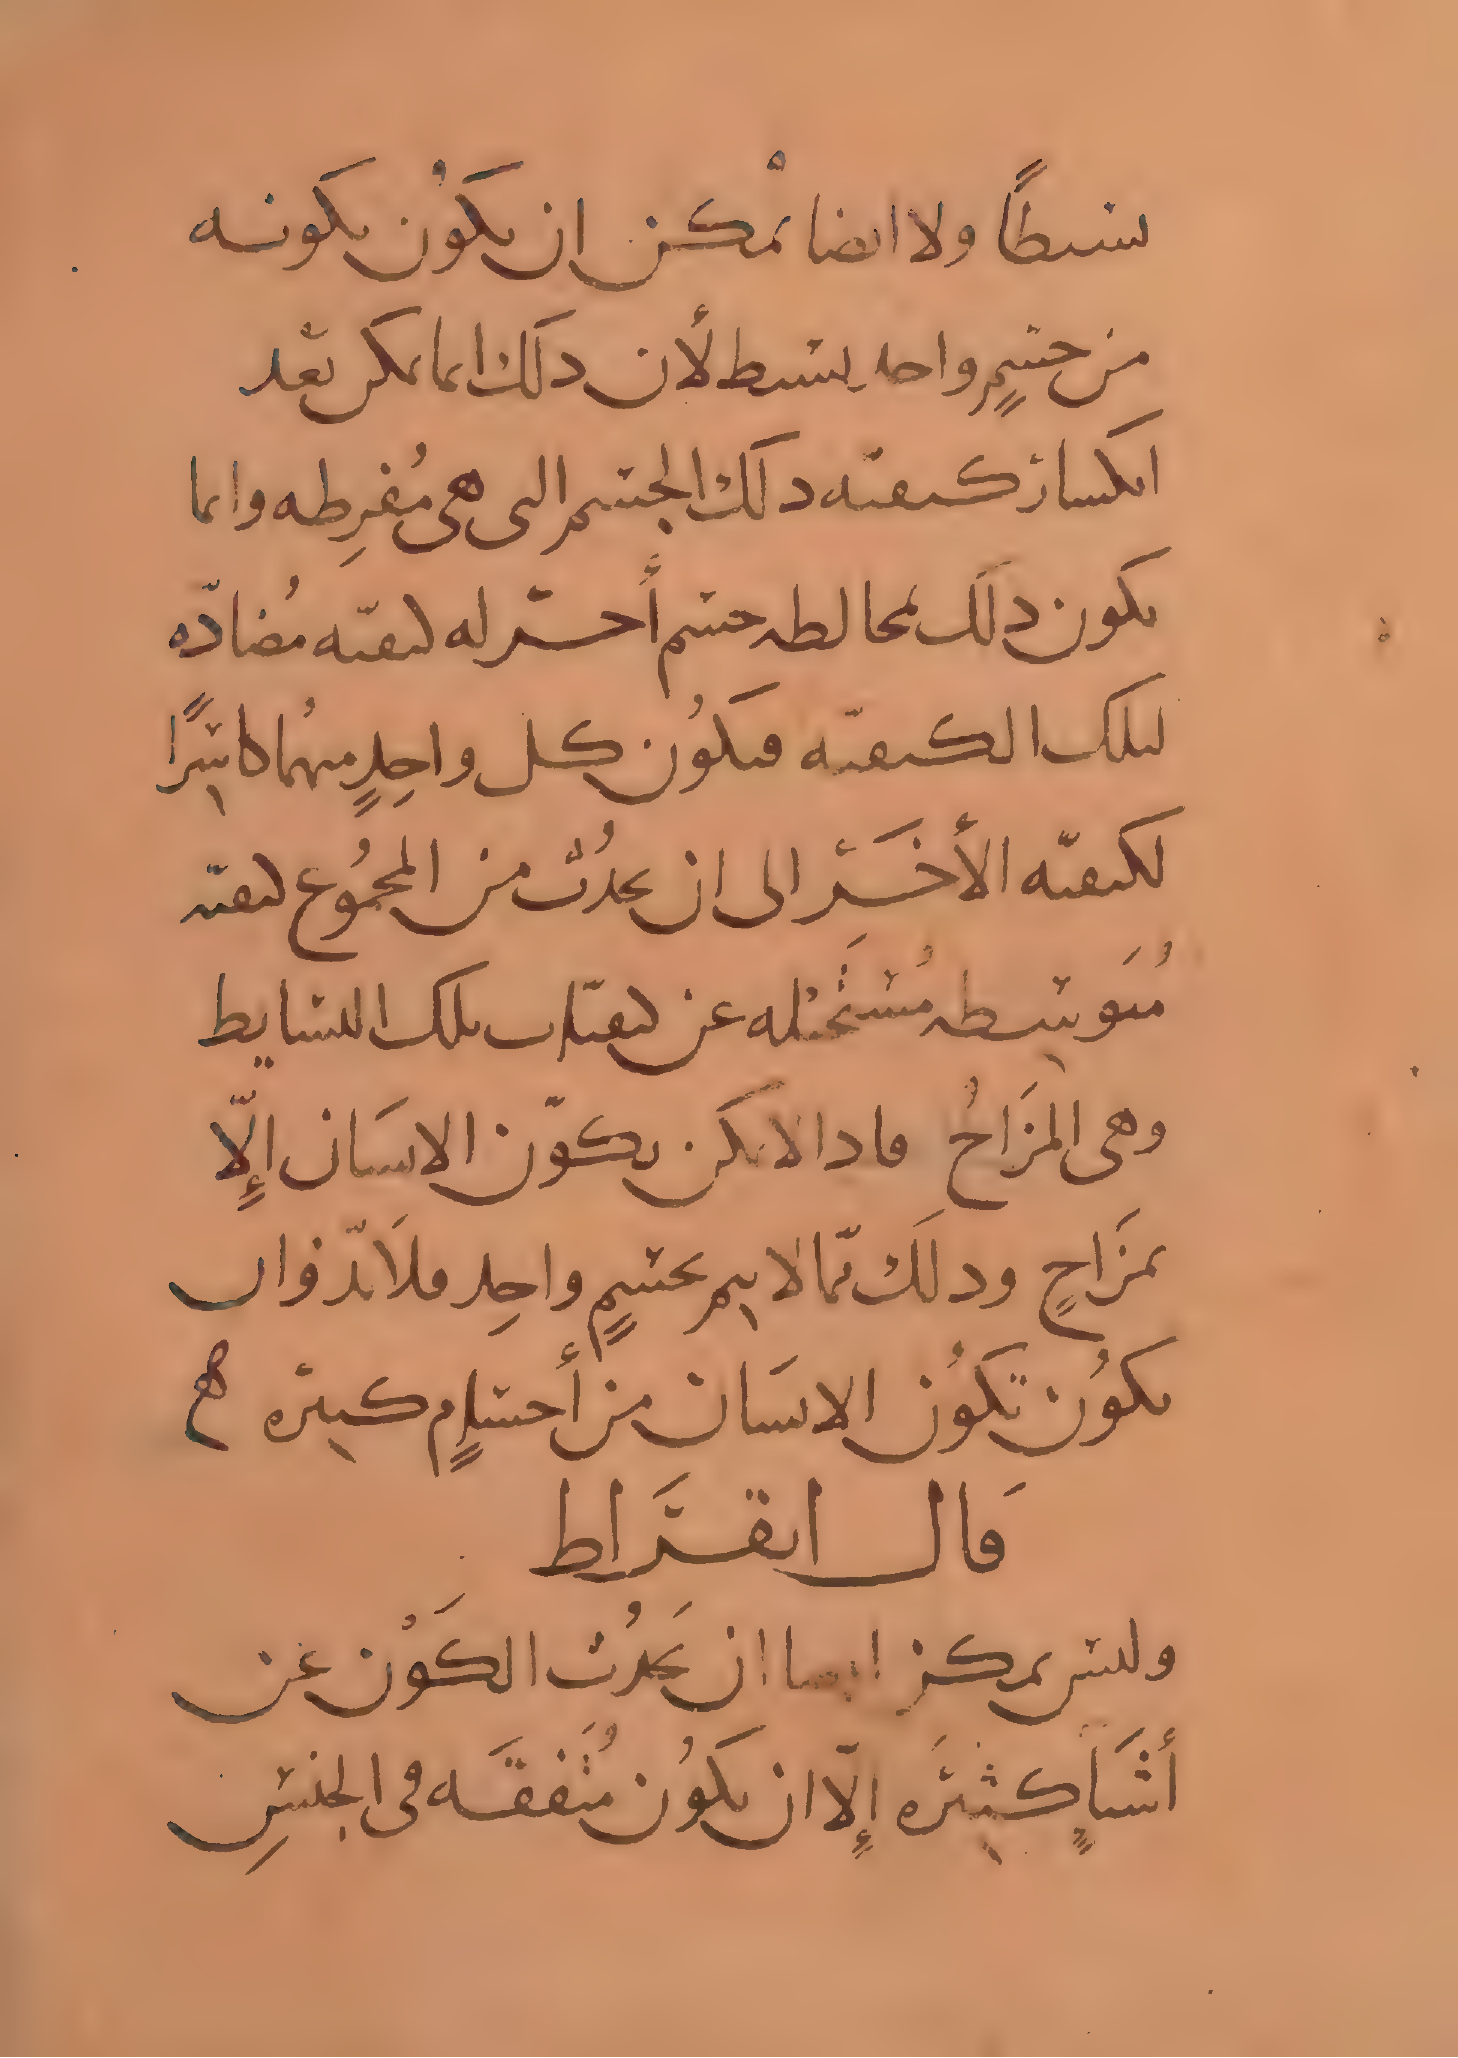 بسيطًا ولا ايضا يمْكن ان يكوْن تكونه
من جسمٍ واحد بسيط لأن ذلك انما يمكن بعد
انكسار كيفيّه ذلك الجسم التى هى مُفرِطه وانما
يكون ذلك بمخالطه جسم أخر له كيفيّه مُضادّه
لتلك الكيفيّه فيكوُن كل واحِدٍ منهُما كاسِرًا
لكيفيّه الأخَر الى ان يحدُث من المجمُوع كيفيّه
مُتَوسِطه مُستَحيله عن كيفيّات تلك البسايط
وهى المزَاجُ فاذا لا يمكن تكوّن الانسَان إلّا
بمزَاجٍ وذلك ممّا لا يتم بجسمٍ واحِد فلَا بدّ وان
يكوُن تكوُن الانسَان من أجسامٍ كثيره ه
قَال ابقرَاط
وليس يمكن ايضا ان يَحدُث الكَوْن عن
أشيَاٍ كثيرَه إلّا ان يكوُن مُتَفقَه فى الجنسِ